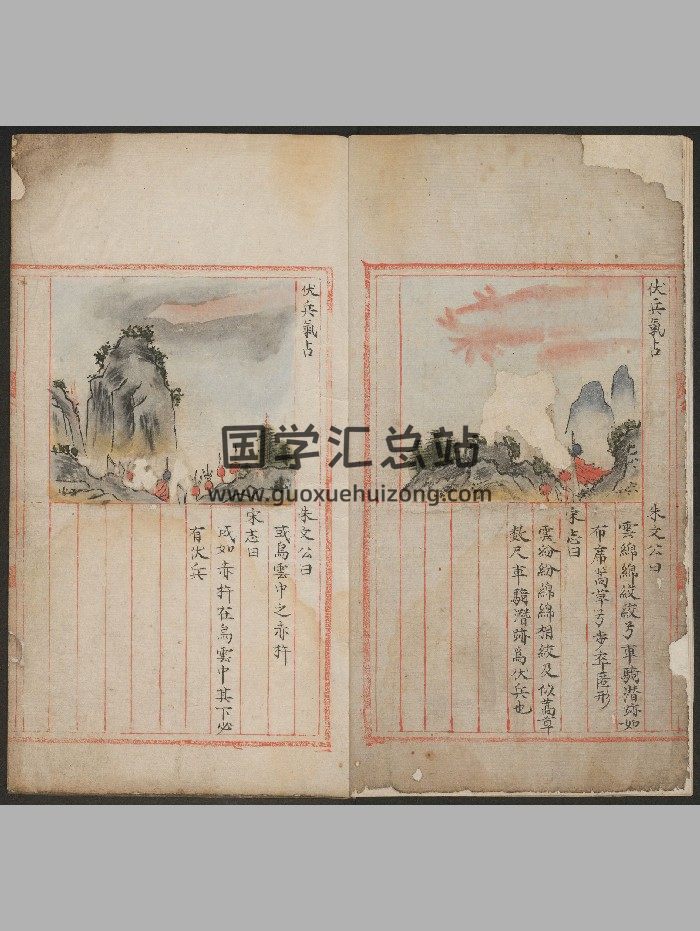 伏兵氣占
朱文公曰
雲綿綿絞絞兮車騎潛跡如
布席蒿草兮步卒匿形
宋志曰
雲紛紛綿綿相絞及似蒿草
数尺車騎潛跡為伏兵也
伏兵氣占
朱文公曰
或烏雲中之赤杵
宋志曰
或如赤杵在烏雲中其下必
有伏兵
国学汇总站
www.guoxuehuizong.com